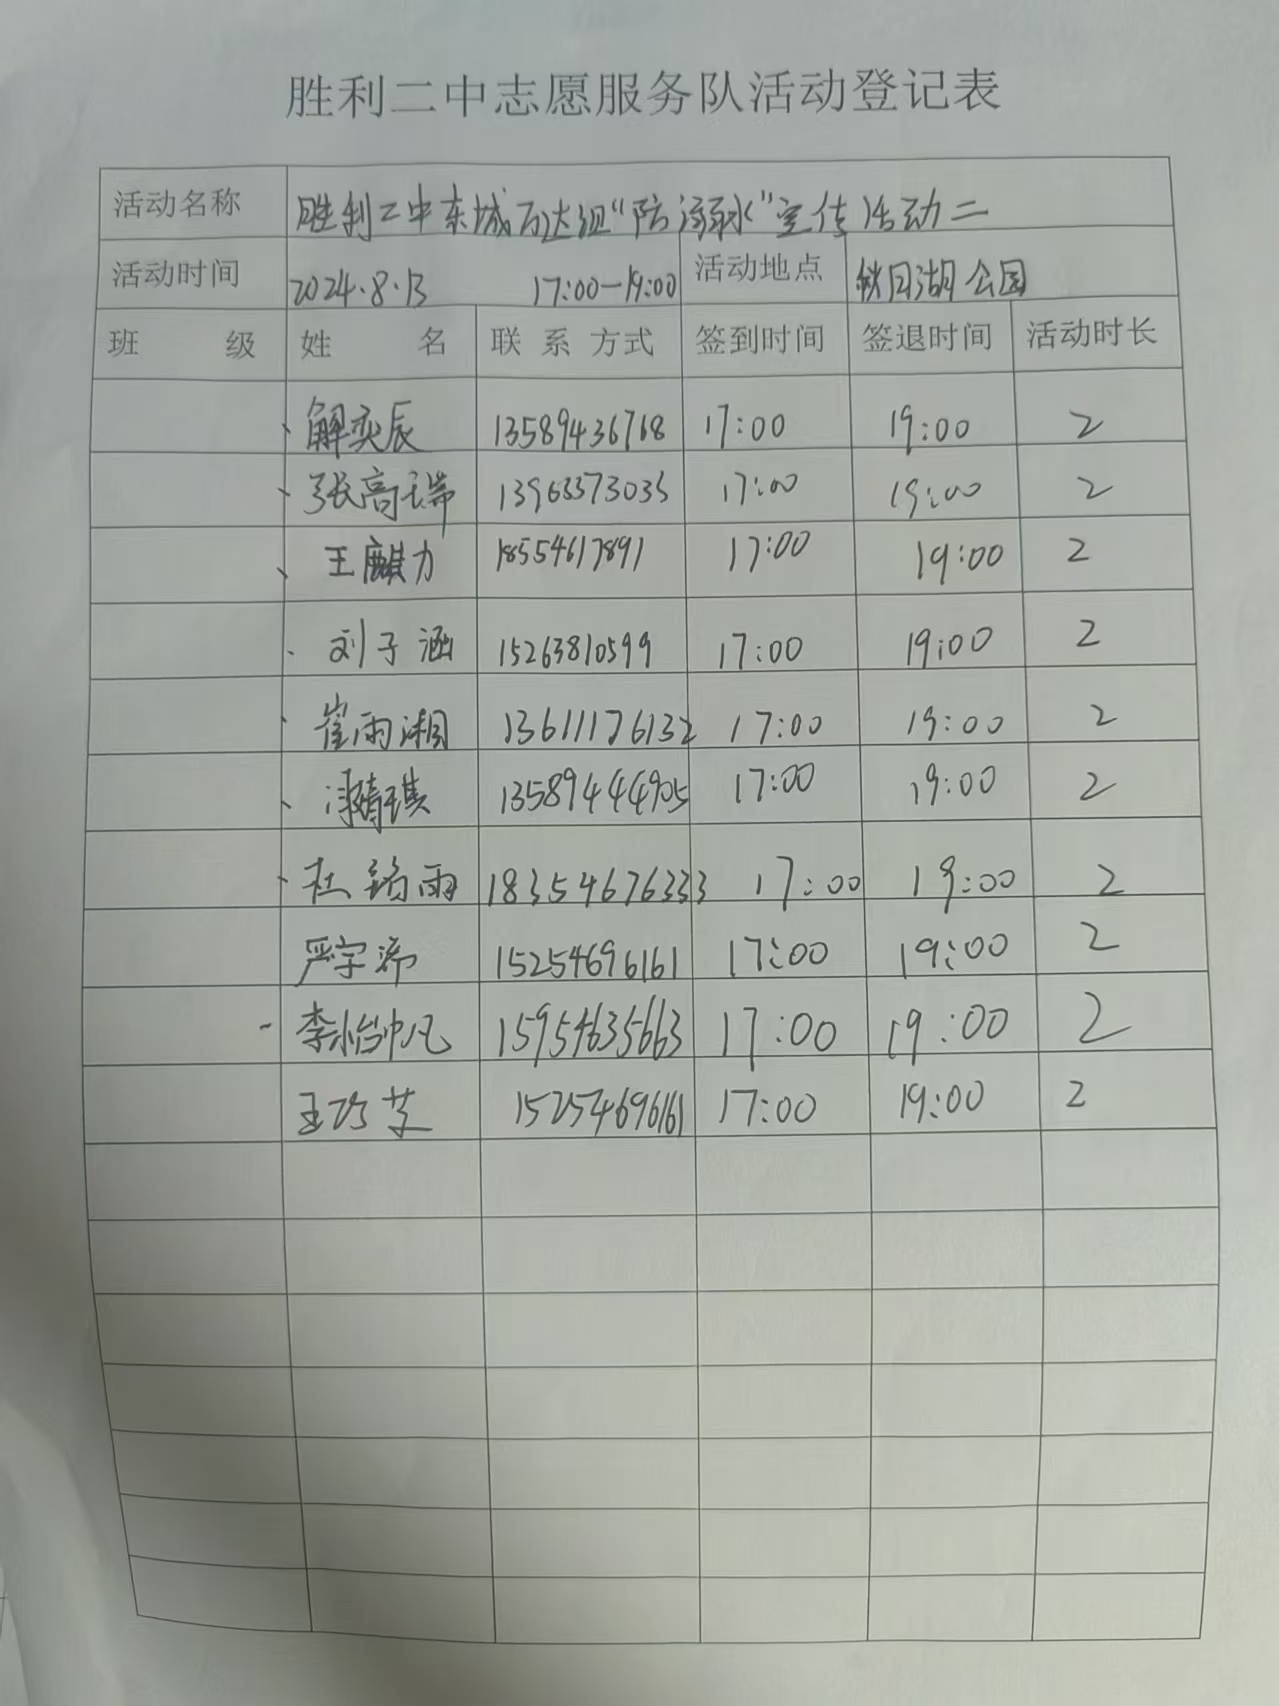 胜利二中志愿服务队活动登记表
活动名称 胜利二中东城万达组“防溺水”宣传活动二
活动时间 2024.8.13 17:00—19:00 活动地点 秋月湖公园
班 级 姓 名 联系方式 签到时间 签退时间 活动时长
解奕辰 13589436768 17:00 19:00 2
张高瑞 13963373035 17:00 19:00 2
王麒力 18554617891 17:00 19:00 2
刘子涵 15263810599 17:00 19:00 2
崔雨湘 13611176132 17:00 19:00 2
13589444905 17:00 19:00 2
杜 雨 18354676333 17:00 19:00 2
严宇 15254696161 17:00 19:00 2
李怡帆 15954635663 17:00 19:00 2
王巧芝 15254696161 17:00 19:00 2